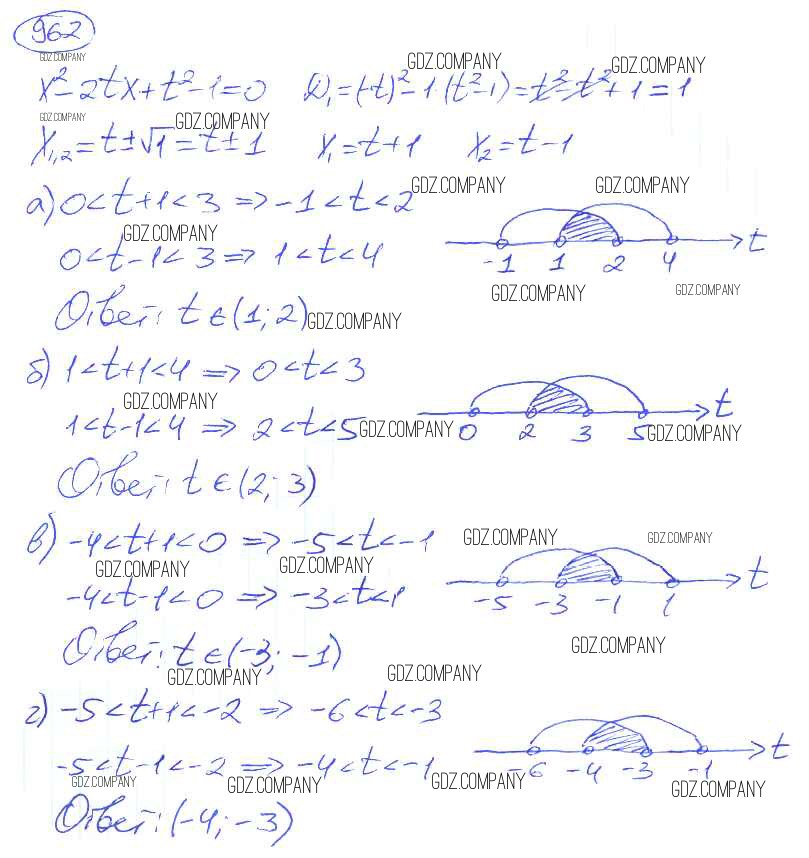 962
GDZ.COMPANY
GDZ.COMPANY GDZ.COMPANY
x² - 2tx + t² - 1 = 0   D₁ = (-t)² - 1·(t² - 1) = t² - t² + 1 = 1
GDZ.COMPANY GDZ.COMPANY
x₁,₂ = t ± √1 = t ± 1   x₁ = t + 1   x₂ = t - 1
GDZ.COMPANY GDZ.COMPANY
а) 0 < t + 1 < 3 => -1 < t < 2
GDZ.COMPANY
0 < t - 1 < 3 => 1 < t < 4
-1 1 2 4 t
GDZ.COMPANY GDZ.COMPANY
Ответ: t ∈ (1; 2)
GDZ.COMPANY
б) 1 < t + 1 < 4 => 0 < t < 3
GDZ.COMPANY
1 < t - 1 < 4 => 2 < t < 5
GDZ.COMPANY
0 2 3 5 t
GDZ.COMPANY
Ответ: t ∈ (2; 3)
в) -4 < t + 1 < 0 => -5 < t < -1
GDZ.COMPANY GDZ.COMPANY
GDZ.COMPANY GDZ.COMPANY
-4 < t - 1 < 0 => -3 < t < 1
-5 -3 -1 1 t
GDZ.COMPANY
Ответ: t ∈ (-3; -1)
GDZ.COMPANY GDZ.COMPANY
г) -5 < t + 1 < -2 => -6 < t < -3
-5 < t - 1 < -2 => -4 < t < -1
-6 -4 -3 -1 t
GDZ.COMPANY GDZ.COMPANY GDZ.COMPANY GDZ.COMPANY
Ответ: (-4; -3)